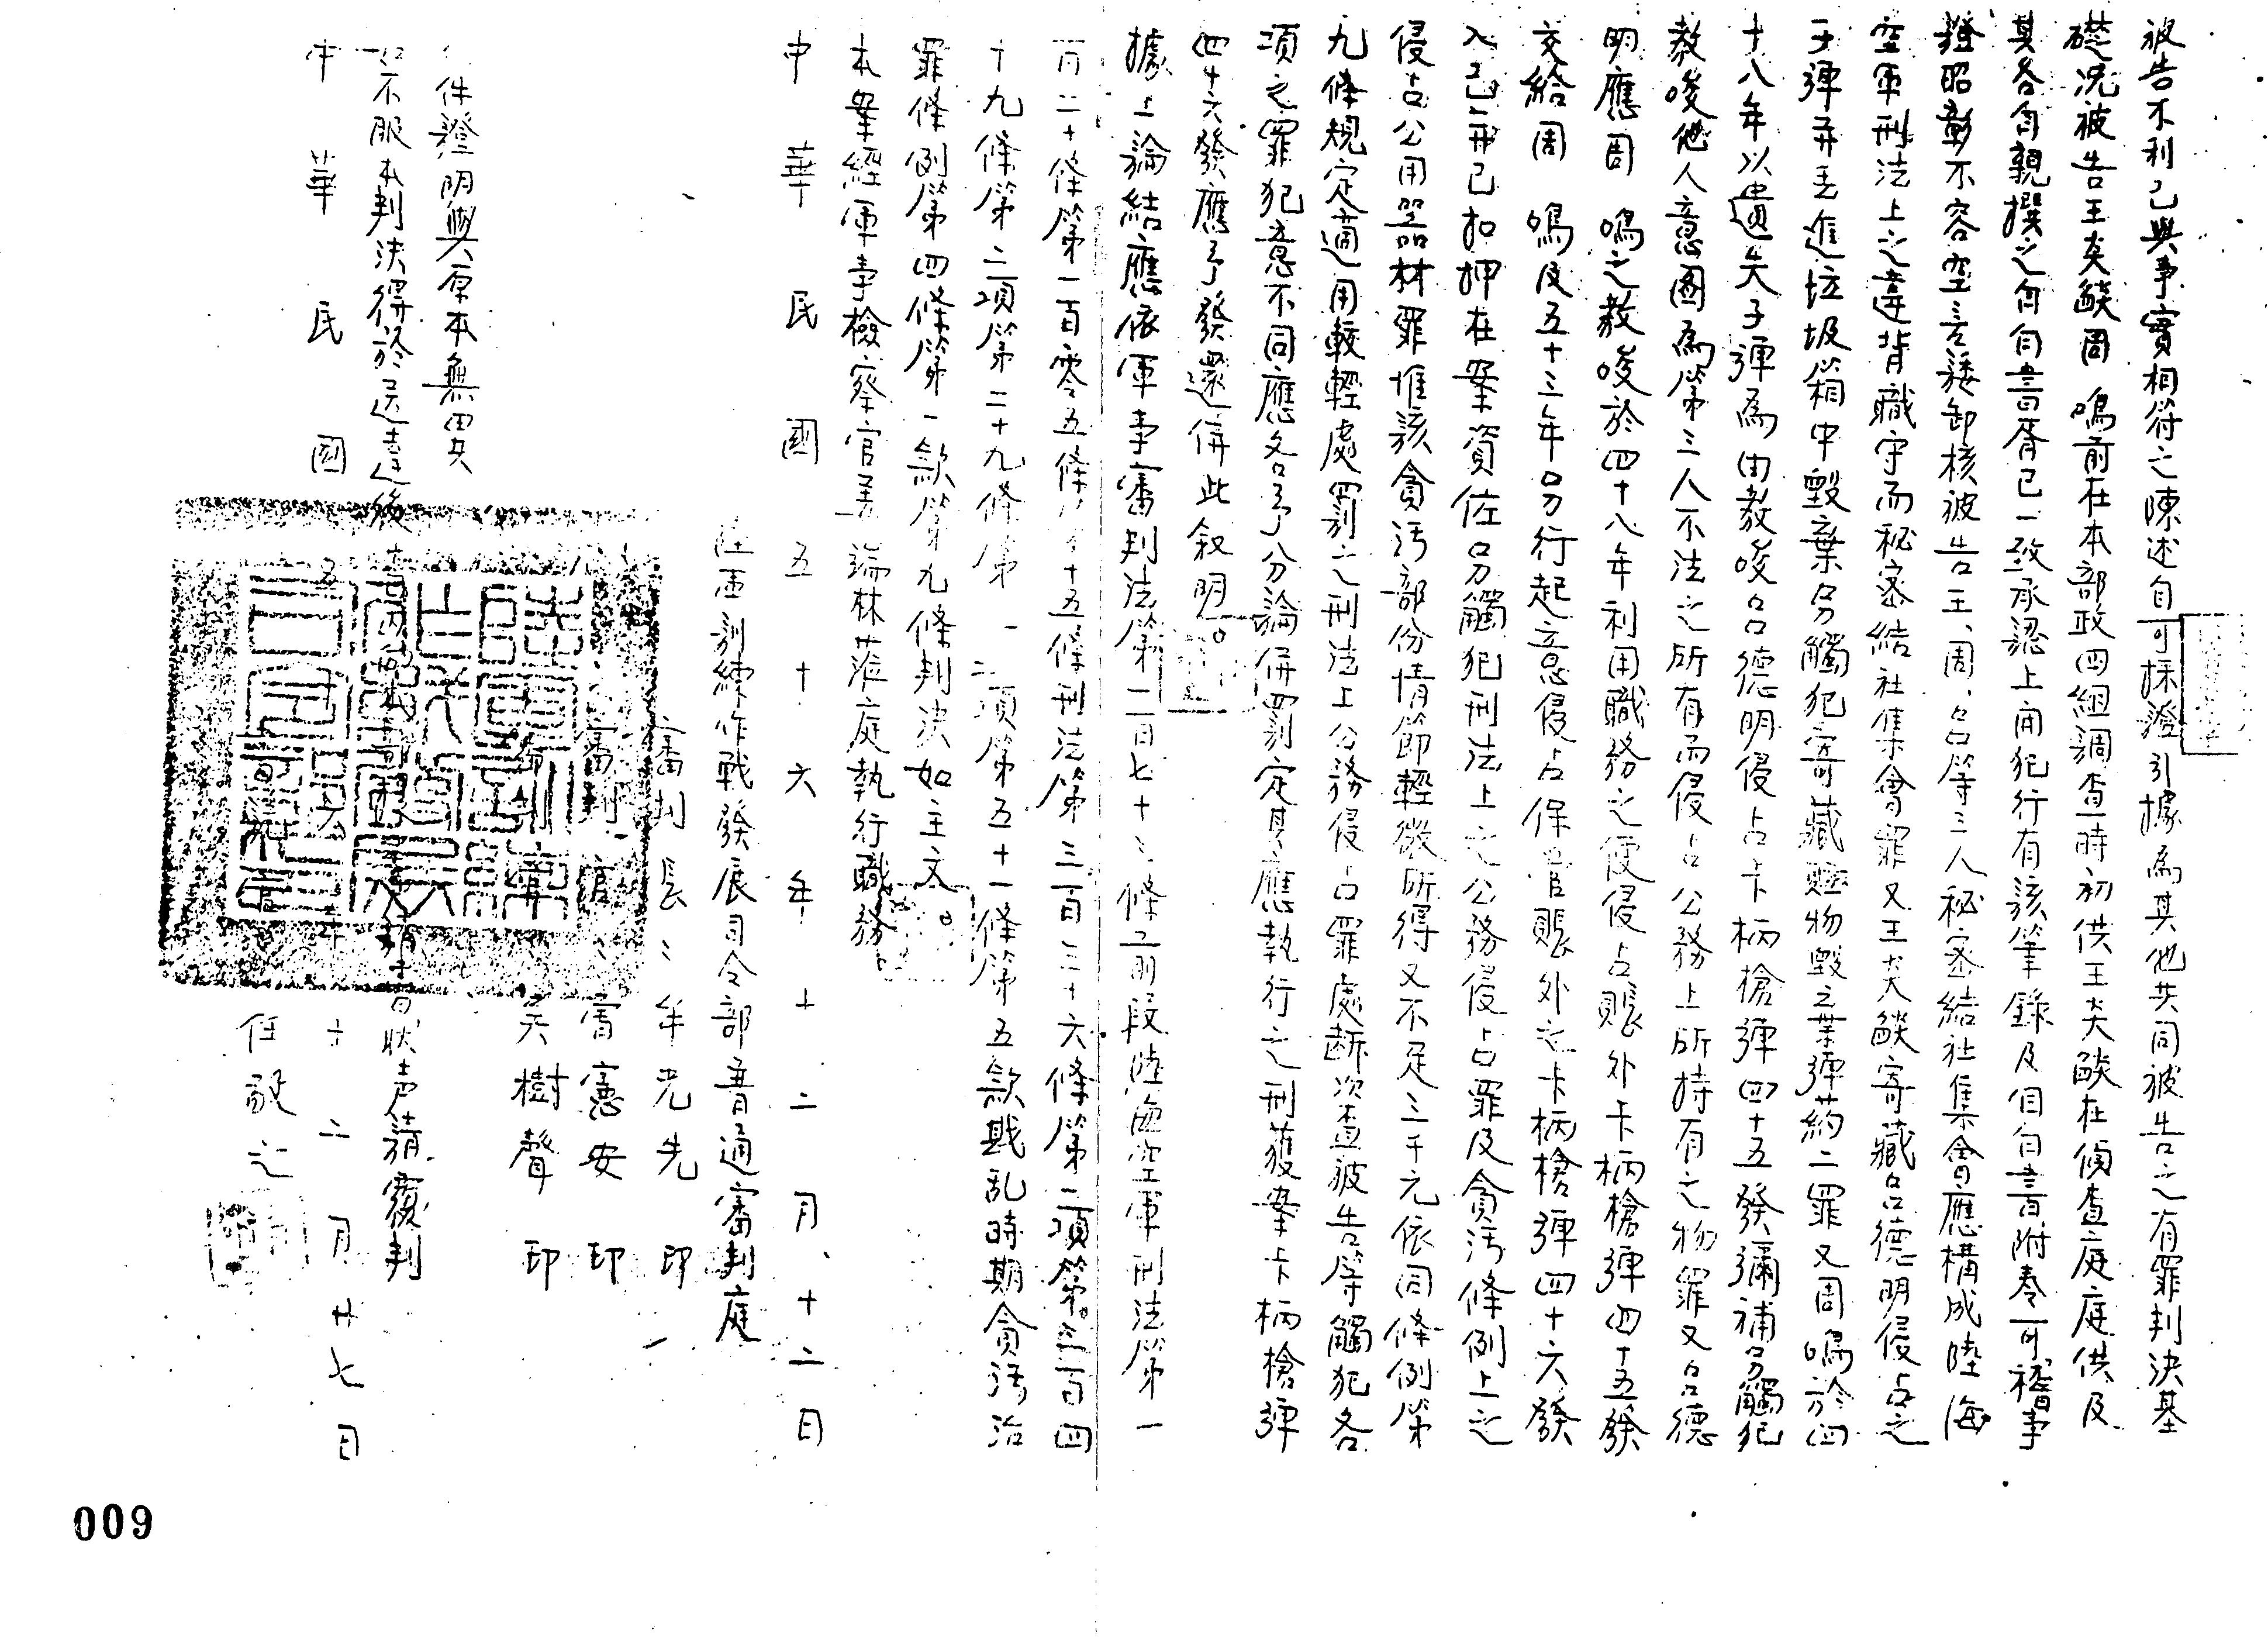 被告不利已與事實相符之陳述自可採證引據為其他共同被告之有罪判決基
礎況被告王炎燄周 鳴前在本部政四組調查時初供王炎燄在偵查庭庭供及
其各自親撰之自白書胥已一致承認上開犯行有該筆錄及自白書附卷可稽事
證昭彰不容空言諉卸核被告王、周、呂等三人秘密結社集會應構成陸海
空軍刑法上之違背職守而秘密結社集會罪又王炎燄寄藏呂德明侵占之
子彈再丟進垃圾箱中毀棄另觸犯寄藏贓物毀棄彈葯二罪又周鳴於四
十八年以遺失子彈為由教唆呂德明侵占卡柄槍彈四十五發彌補另觸犯
教唆他人意圖為第三人不法之所有而侵占公務上所持有之物罪又呂德
明應周 鳴之教唆於四十八年利用職務之便侵占賬外卡柄槍彈四十五發
交給周 鳴及五十三年另行起意侵占保管賬外之卡柄槍彈四十六發
入己並已扣押在案資佐另觸犯刑法上之公務侵占罪及貪污條例上之
侵占公用器材罪惟該貪污部份情節輕微所得又不足三千元依同條例第
九條規定適用較輕處罰之刑法上公務侵占罪處斷次查被告等觸犯各
項之罪犯意不同應各予分論併罰定其應執行之刑獲案卡柄槍彈
四十六發應予發還併此叙明。
據上論結應依軍事審判法第一百七十三條前段陸海空軍刑法第一
百二十條第一百零五條 十五條刑法第三百三十六條第二項第三百四
十九條第二項第二十九條第一、二項第五十一條第五款戡乱時期貪污治
罪條例第四條第一款第九條判決如主文。
本案經軍事檢察官姜端林蒞庭執行職務
中華民國五十六年十二月十二日
陸軍訓練作戰發展司令部普通審判庭
審判長 牟光先 印
審判官 甯憲安 印
吳樹聲 印
件證明與原本無異
如不服本判決得於送達後 書狀聲請覆判
中華民國五十六年十二月廿七日
書記官 任敬之
009